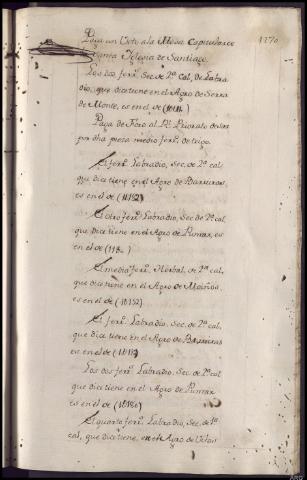 1270
Paga un Voto a la Mesa Capitular de
Santa Iglesia de Santiago.
Los dos ferrs. Sec. de 2ª cal. de Labra
dio, que dice tiene en el Agro de Serra
de Monte, es en el de
Paga de Foro al Rl. Priorato de Sar
por dha pieza medio ferr. de trigo.
El ferr. Labradio, Sec. de 2ª cal.
que dice tiene en el Agro de Barreiros,
es en el de (10152)
El otro ferr. Labradio, Sec. de 2ª cal.
que dice tiene en el Agro de Pumar, es
en el de
El medio ferr. Herbal, de 2ª cal,
que dice tiene en el Agro de Moiños,
es en el de (10152)
El ferr. Labradio, Sec. de 2ª cal,
que dice tiene en el Agro de Barreiros
es en el de
Los dos ferrs. Labradio, Sec. de 2ª cal
que dice tiene en el Agro de Pumar
es en el de
El quarto ferr. Labradio, Sec. de 1ª
cal, que dice tiene, en el Agro de